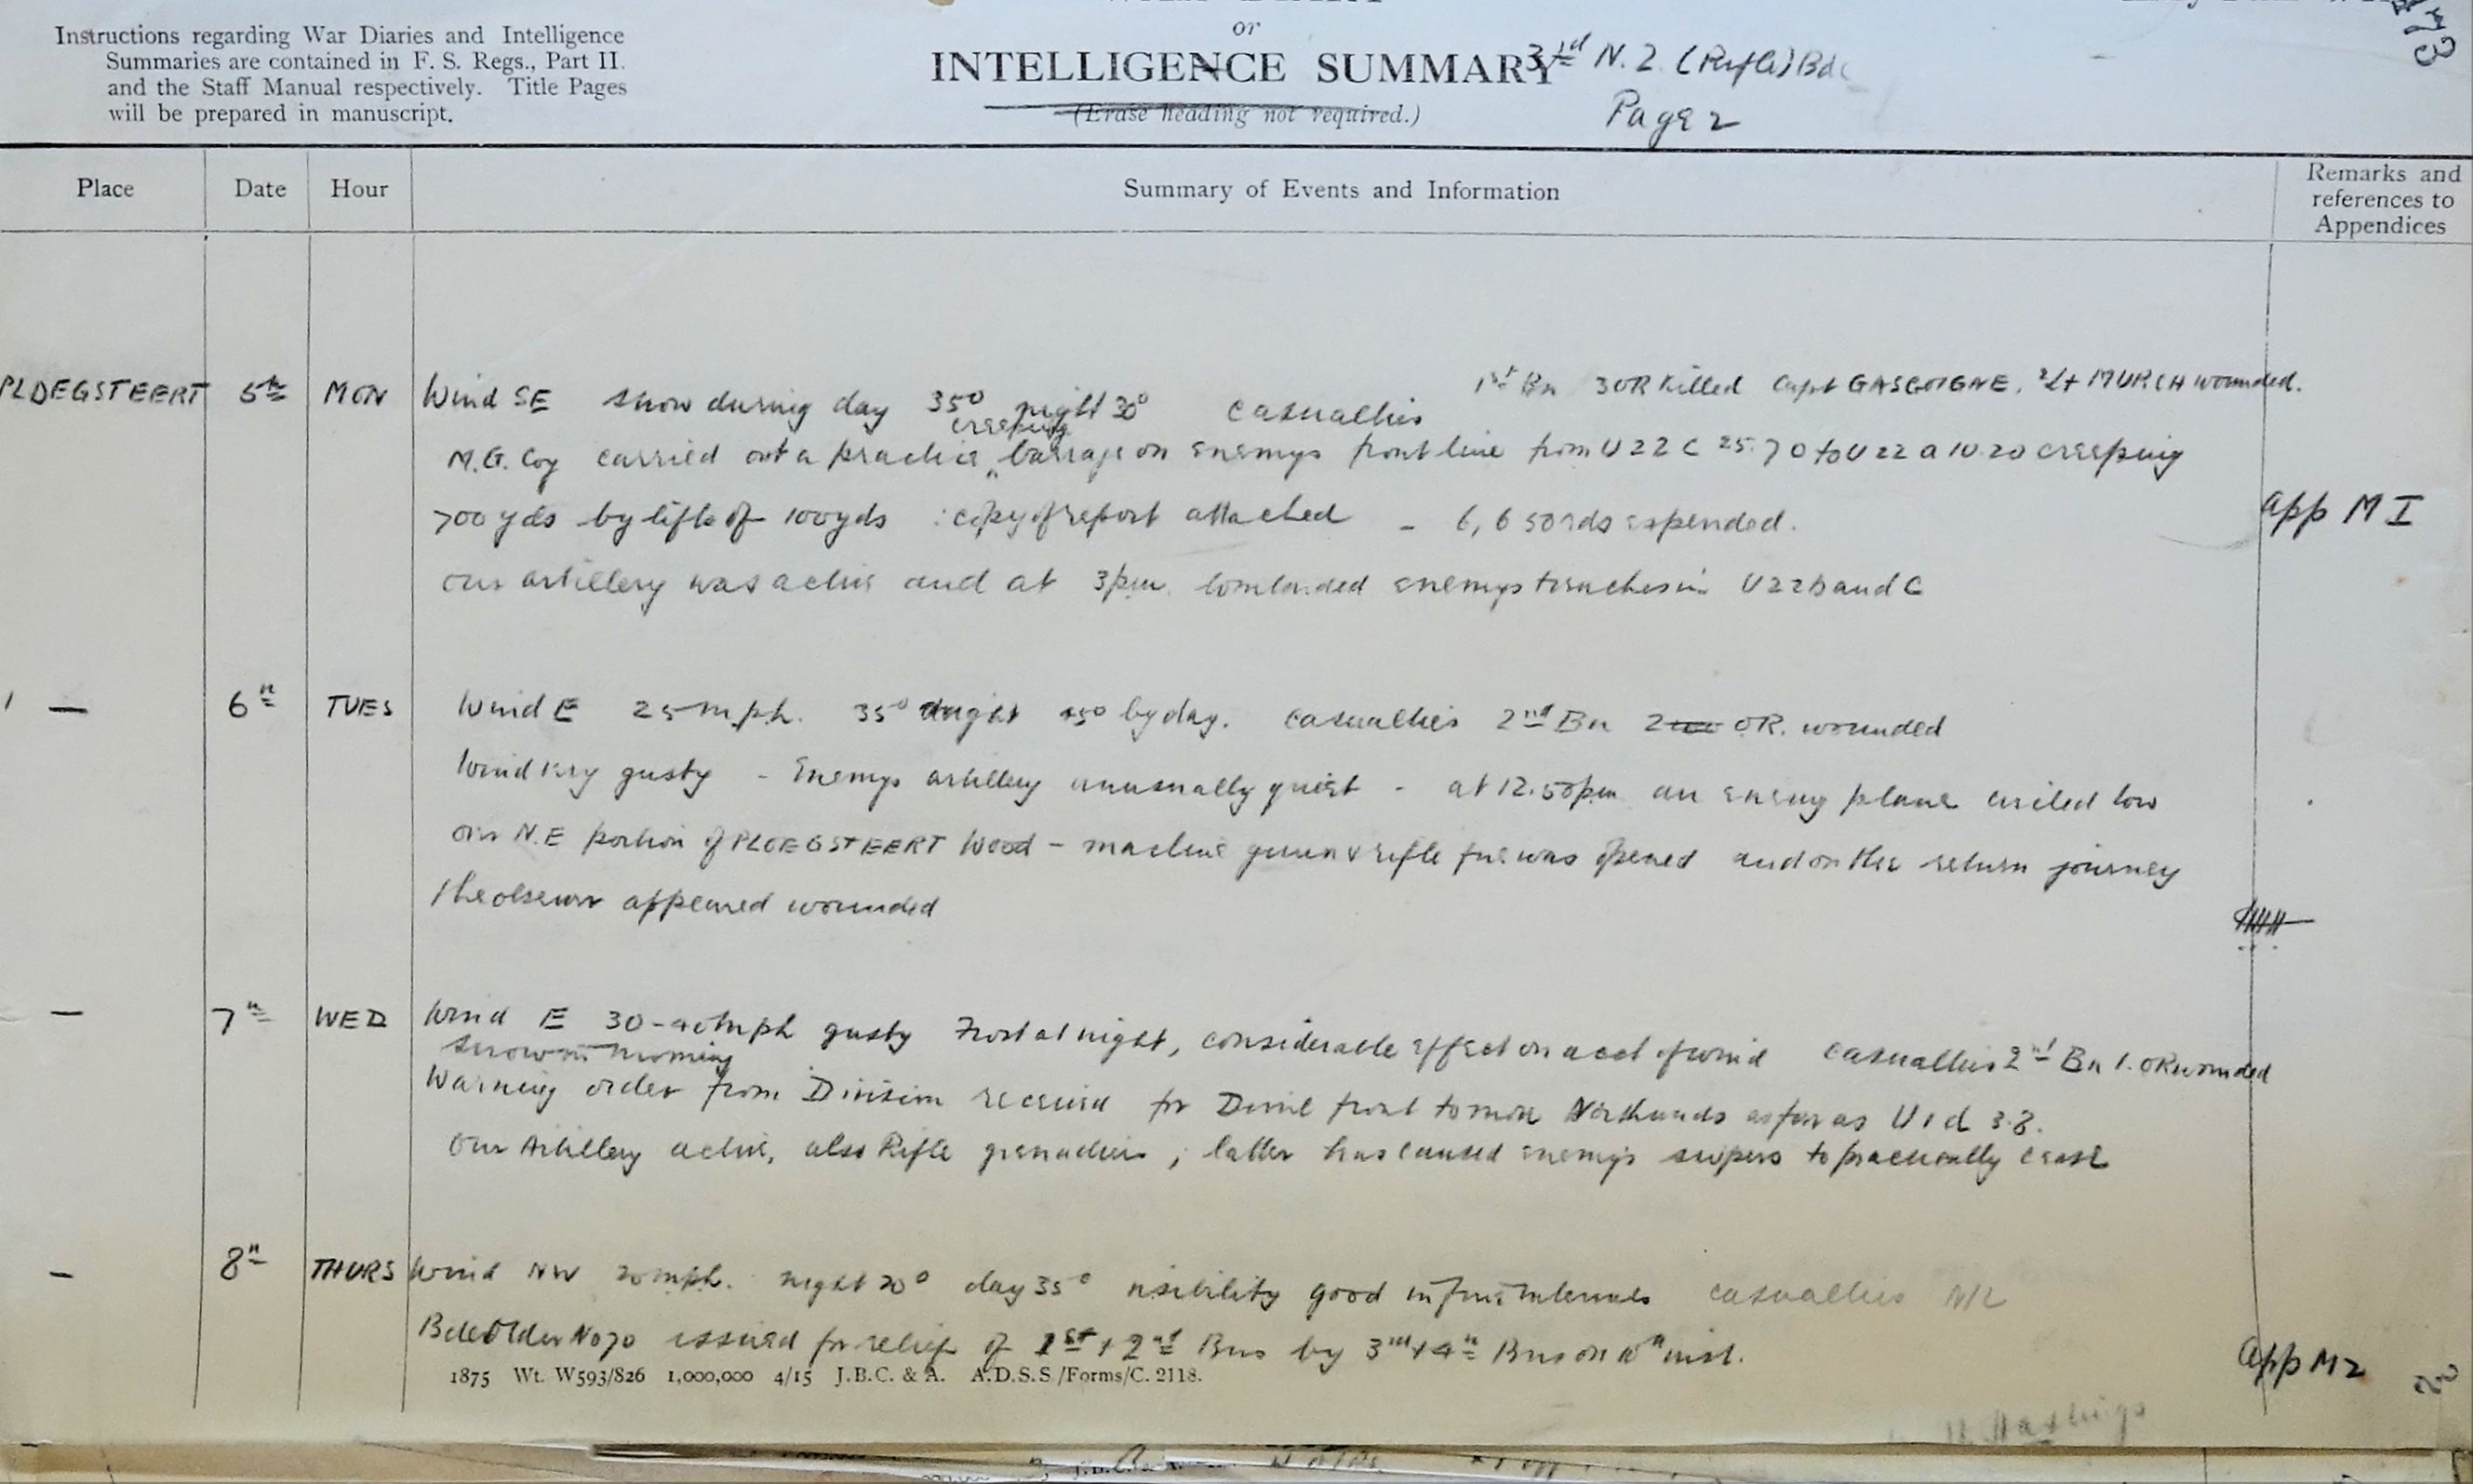 Instructions regarding War Diaries and Intelligence
Summaries are contained in F. S. Regs., Part II.
and the Staff Manual respectively. Title Pages
will be prepared in manuscript.
or
INTELLIGENCE SUMMARY
(Erase heading not required.)
3rd N.Z. (Rifle) Bde
Page 2
473
Place Date Hour Summary of Events and Information Remarks and references to Appendices
PLOEGSTEERT 5th MON Wind SE snow during day 35° night 30° casualties 1st Bn 3 OR killed Capt GASGOIGNE, 2/Lt MURCH wounded.
creeping
M.G. Coy carried out a practice barrage on enemys front line from U 22 C 25.70 to U 22 a 10.20 creeping
700 yds by lifts of 100 yds : copy of report attached - 6,650 rds expended. app M I
Our artillery was active and at 3 pm. bombarded enemys trenches in U 22 b and C
— 6th TUES Wind E 25 mph. 35° by day. Casualties 2nd Bn 2 OR. wounded
Wind very gusty - Enemys artillery unusually quiet - at 12.50 pm an enemy plane circled low
over N.E portion of PLOEGSTEERT Wood - machine gun & rifle fire was opened and on the return journey
the observer appeared wounded
— 7th WED Wind E 30-40 mph gusty Frost at night, considerable effect on acct of wind Casualties 2nd Bn 1. OR wounded
snow in morning
Warning order from Division received for Divnl front to move Northwards as far as U 1 d 3.8.
Our Artillery active, also Rifle grenadiers; latter has caused enemy's snipers to practically cease
— 8th THURS Wind NW 20 mph. night 20° day 35° visibility good in fine intervals casualties NIL
Bde Order No 70 issued for relief of 1st + 2nd Bns by 3rd + 4th Bns on 10th inst. app M2
1875 Wt. W593/826 1,000,000 4/15 J.B.C. & A. A.D.S.S./Forms/C. 2118.
Hastings